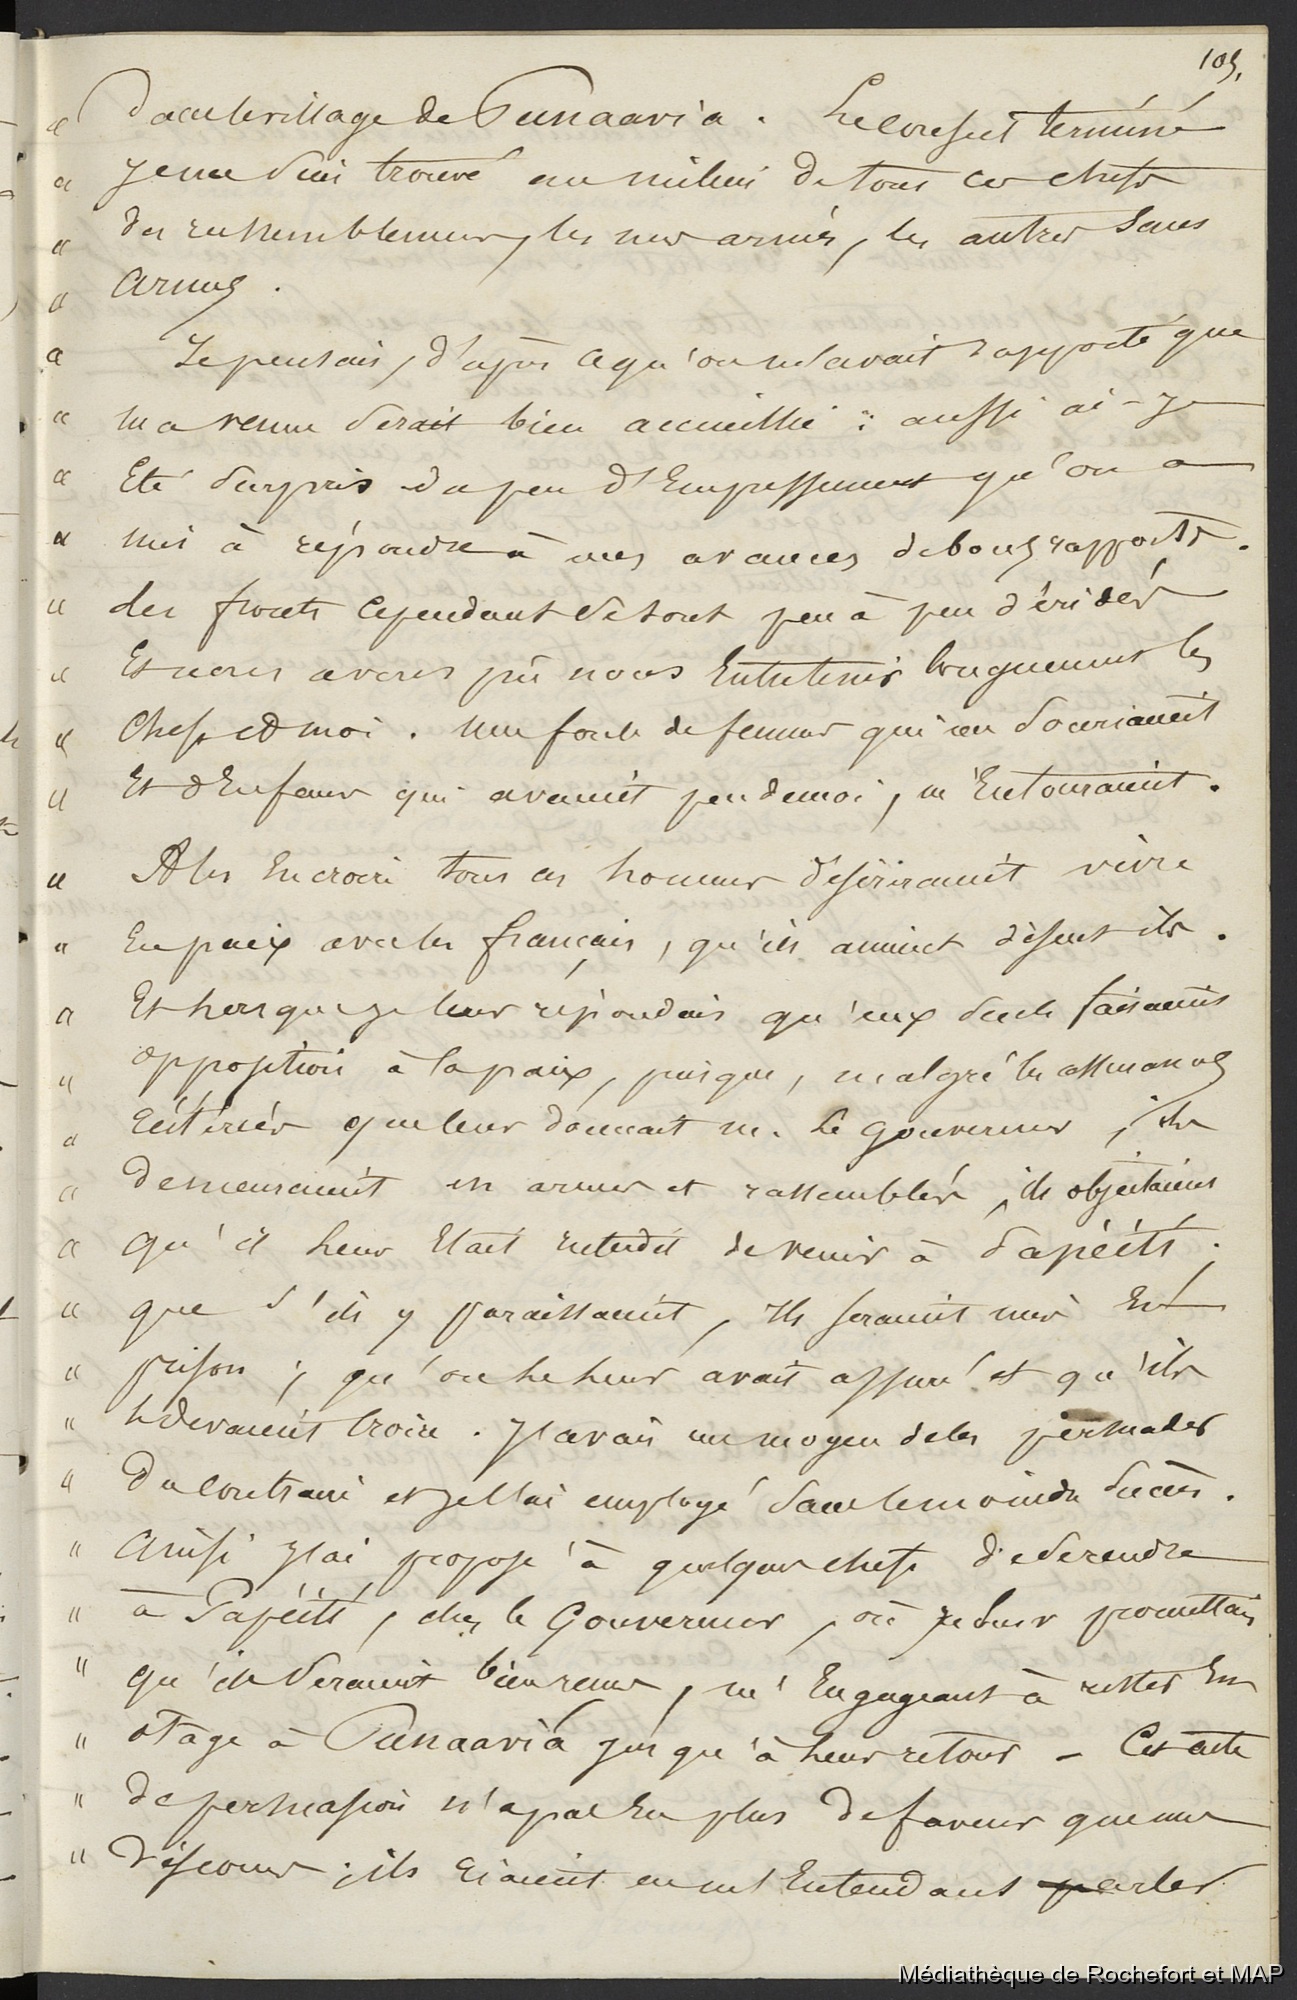 105.
« dans le village de Punaavia. Le tout fut terminé
« je me suis trouvé au milieu de tous ces chefs
« des rassemblemens, les uns armés, les autres sans
« armes.
« Je pensais, d'après ce qu'on m'avait rapporté que
« ma venue serait bien accueillie : aussi ai-je
« été surpris du peu d'empressement qu'on a
« mis à répondre à mes avances de bons rapports.
« les fronts cependant se sont peu à peu déridés
« et nous avons pû nous entretenir longuement les
« chefs et moi. une foule de femmes qui me souriaient
« et d'enfans qui avaient peu de moi, m'entouraient.
« A les en croire tous ces hommes désireraient vivre
« en paix avec les français, qu'ils aiment disent ils.
« Et lorsque je leur répondais qu'eux seuls faisaient
« opposition à la paix, puisque, malgré les assurances
« réitérées que leur donnait m. le gouverneur, ils
« demeuraient en armes et rassemblés, ils objectaient
« qu'il leur était interdit de venir à Papéïti ;
« que s'ils y paraissaient, ils seraient mis en
« prison ; qu'on le leur avait assuré et qu'ils
« le devaient croire. J'avais un moyen de les persuader
« du contraire et je l'ai employé sans le moindre succès.
« Ainsi j'ai proposé à quelques chefs de se rendre
« à Papéïti, chez le Gouverneur, où je leur promettais
« qu'ils seraient bien venus, m'engageant à rester en
« otage à Punaavia jusqu'à leur retour – Cet acte
« de persuasion n'a pas eu plus de faveur que mes
« discours ; ils riaient en m'entendant parler
Médiathèque de Rochefort et MAP